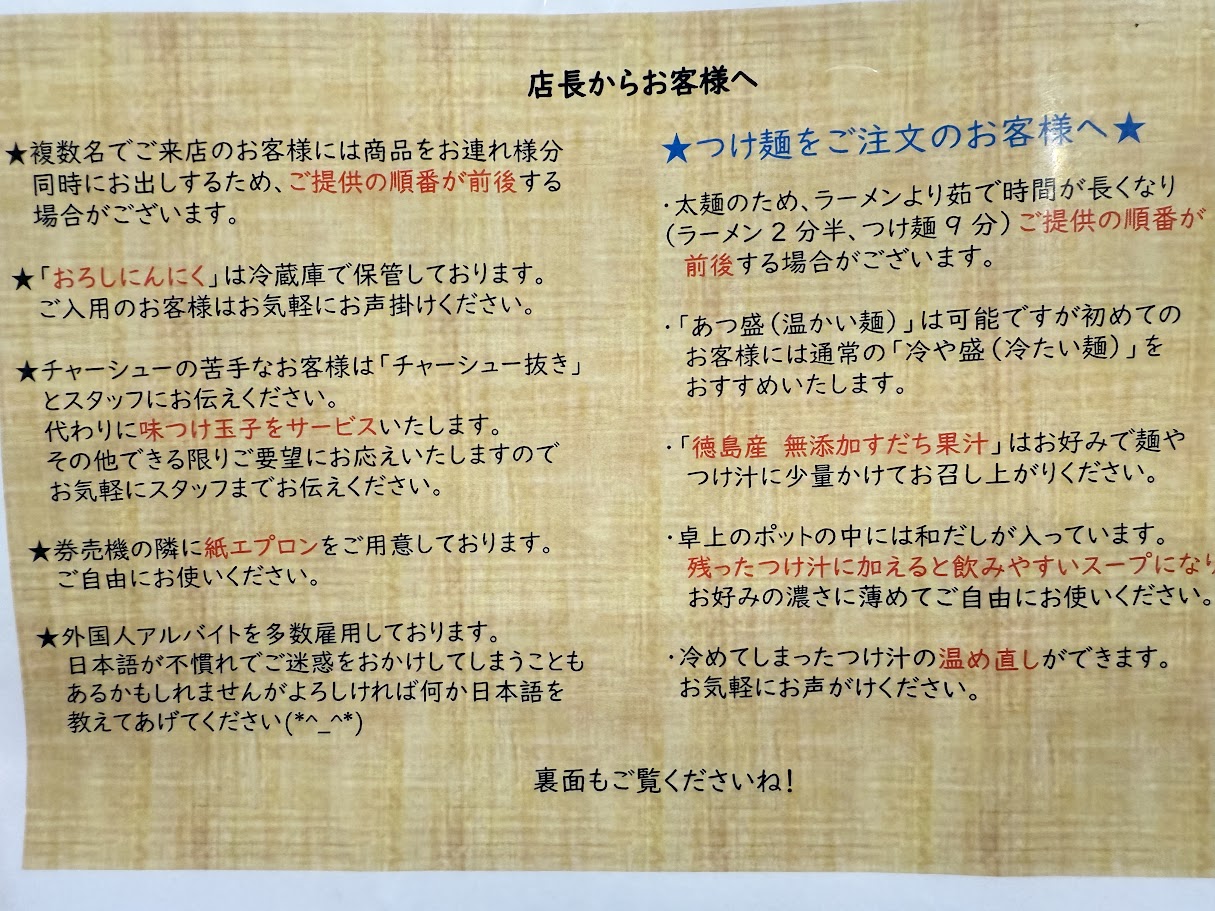 店長からお客様へ
★複数名でご来店のお客様には商品をお連れ様分
同時にお出しするため、ご提供の順番が前後する
場合がございます。
★「おろしにんにく」は冷蔵庫で保管しております。
ご入用のお客様はお気軽にお声掛けください。
★チャーシューの苦手なお客様は「チャーシュー抜き」
とスタッフにお伝えください。
代わりに味つけ玉子をサービスいたします。
その他できる限りご要望にお応えいたしますので
お気軽にスタッフまでお伝えください。
★券売機の隣に紙エプロンをご用意しております。
ご自由にお使いください。
★外国人アルバイトを多数雇用しております。
日本語が不慣れでご迷惑をおかけしてしまうことも
あるかもしれませんがよろしければ何か日本語を
教えてあげてください(*^_^*)
★つけ麺をご注文のお客様へ★
・太麺のため、ラーメンより茹で時間が長くなり
(ラーメン2分半、つけ麺9分)ご提供の順番が
前後する場合がございます。
・「あつ盛(温かい麺)」は可能ですが初めての
お客様には通常の「冷や盛(冷たい麺)」を
おすすめいたします。
・「徳島産 無添加すだち果汁」はお好みで麺や
つけ汁に少量かけてお召し上がりください。
・卓上のポットの中には和だしが入っています。
残ったつけ汁に加えると飲みやすいスープになり
お好みの濃さに薄めてご自由にお使いください。
・冷めてしまったつけ汁の温め直しができます。
お気軽にお声がけください。
裏面もご覧くださいね!